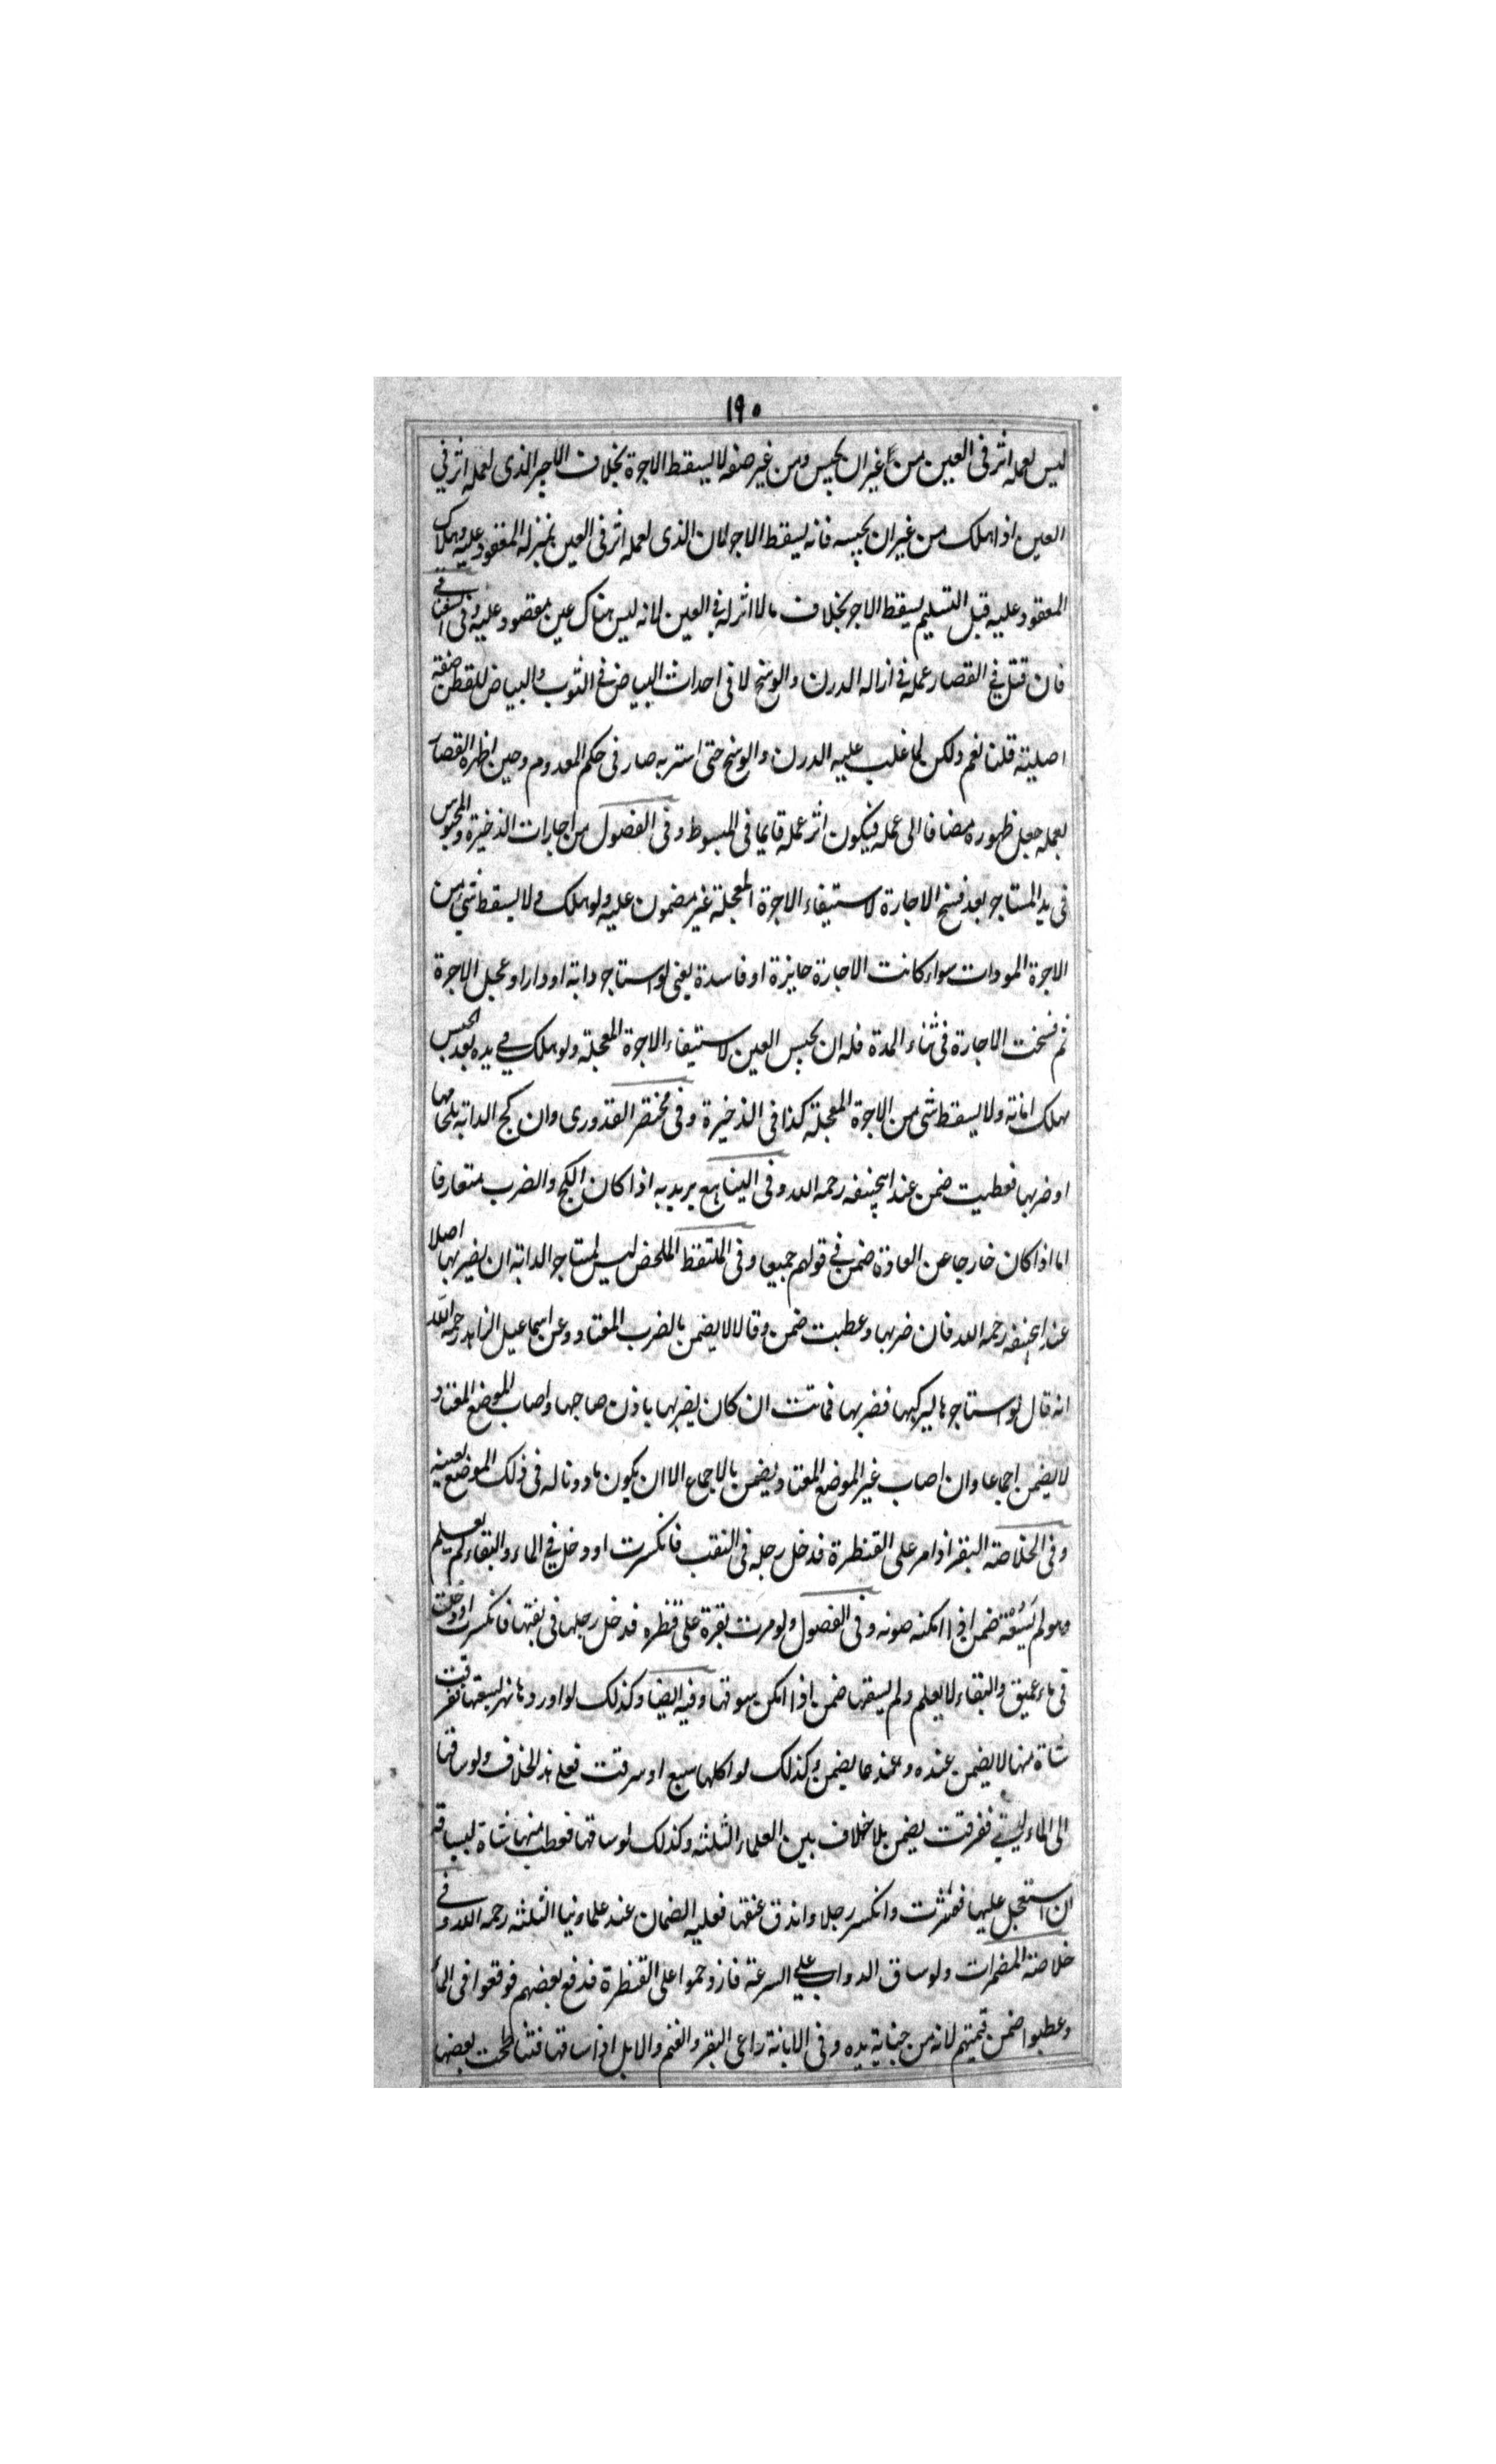 ١٩٠
ليس لعمله اثر فى العين من غير ان يحبس ومن غير صنعه لا يسقط الاجرة بخلاف الاجير الذى لعمله اثر في
العين اذا هلك من غير ان يحبسه فانه يسقط الاجر لان الذى لعمله اثر فى العين بمنزله المعقود عليه وهلاك
المعقود عليه قبل التسليم يسقط الاجر بخلاف ما لا اثر له فى العين لانه ليس هناك عين مقصود عليه وفى
فان قتل فى القصار عمله فى ازاله الدرن والوسخ لا فى احداث البياض فى الثوب والبياض للقطن صفة
اصلية قلنا نعم ولكن لما غلب عليه الدرن والوسخ حتى استتر به صار فى حكم المعدوم وحين اظهره القصار
بعمله جعل ظهوره مضافا الى عمله فيكون اثر عمله قايما فى المبسوط وفى الفصول من اجارات الذخيرة والمحبوس
فى يد المستاجر بعد فسخ الاجارة لاستيفاء الاجرة المعجلة غير مضمون عليه ولو هلك لا يسقط شى من
الاجرة سواء كانت الاجارة جايزة او فاسدة يعنى لو استاجر دابة او دارا وعجل الاجرة
ثم فسخت الاجارة فى اثناء المدة فله ان يحبس العين لاستيفاء الاجرة المعجلة ولو هلك فى يده بعد الحبس
يهلك امانة ولا يسقط شى من الاجرة المعجلة كذا فى الذخيرة وفى مختصر القدورى وان كبح الدابة بلجامها
او ضربها فعطبت ضمن عند ابيحنيفه رحمه الله وفى الينابيع يريد به اذا كان الكبح والضرب متعارفا
اما اذا كان خارجا عن العادة ضمن فى قولهم جميعا وفى الملتقط الملخص ليس لمستاجر الدابة ان يضربها اصلا
عند ابيحنيفه رحمه الله فان ضربها وعطبت ضمن وقالا لا يضمن بالضرب المعتاد وعن اسماعيل الزاهد رحمه الله
انه قال لو استاجرها ليركبها فضربها فماتت ان كان يضربها باذن صاحبها واصاب الموضع المعتاد
لا يضمن اجماعا وان اصاب غير الموضع المعتاد يضمن بالاجماع الا ان يكون ماذونا له فى ذلك الموضع بعينه
وفى الخلاصة البقر اذا مر على القنطرة فدخل رجله فى النقب فانكسرت او دخل فى الماء والبقار لم يعلم
وهو لم يسقه ضمن اذا امكنه صونه وفى الفصول ولو مرت بقرة على قنطره فدخل رجلها فى نقبتها فانكسرت او دخلت
فى ماء عميق والبقار لا يعلم ولم يسقها ضمن اذا امكن سوقها وفيه ايضا وكذلك لو اوردها نهر ليسقها فغرقت
شاة منها لا يضمن عنده وعندهما يضمن وكذلك لو اكلها سبع او سرقت فعلى هذا الخلاف ولو ساقها
الى الماء فغرقت يضمن بلا خلاف بين العلماء الثلثه وكذلك لو ساقها فعطب منها شاة لسياقه
ان استعجل عليها فعثرت وانكسر رجلا واندق عنقها فعليه الضمان عند علماءنا الثلثه رحمه الله وفى
خلاصة المضمرات ولو ساق الدواب على السرعة فازدحموا على القنطرة فدفع بعضهم فوقعوا فى الماء
وعطبوا ضمن قيمتهم لانه من جناية يده وفى الابانة راعى البقر والغنم والابل اذا ساقها فتناطحت بعضها